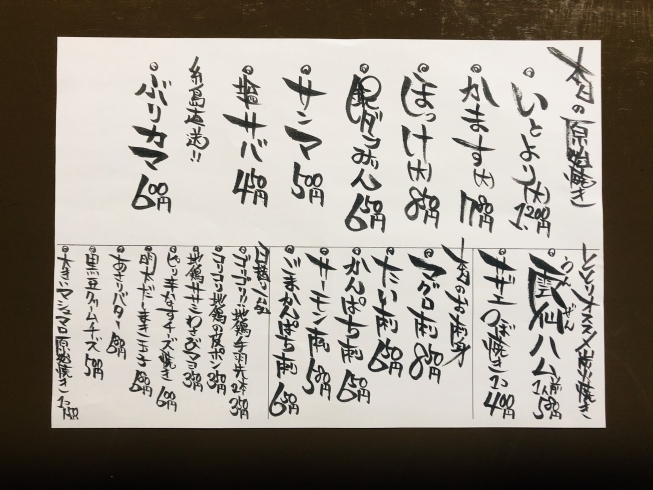 本日の原始焼き
・いとより(大) 1,200円
・かます(大) 780円
・ほっけ(大) 850円
・銀ダラみりん 650円
・サンマ 500円
・サバ 450円
糸島直送!!
・ぶりカマ 600円
炭火焼き
うんぜん
・雲仙ハム 1人前 500円
・サザエつぼ焼き 1コ 400円
本日のお刺身
・マグロ 800円
・たい 650円
・かんぱち 650円
・サーモン 580円
・ごまかんぱち 650円
・ゴリゴリ!!地鶏手羽先 2本 350円
・コリコリ地鶏の皮ポン 350円
・地鶏ササミわさびマヨ 350円
・ピリ辛なすチーズ焼き 600円
・明太だし巻き玉子 600円
・あさりバター
・黒豆クリームチーズ 500円
・大きいマシュマロ原始焼き 1コ 150円